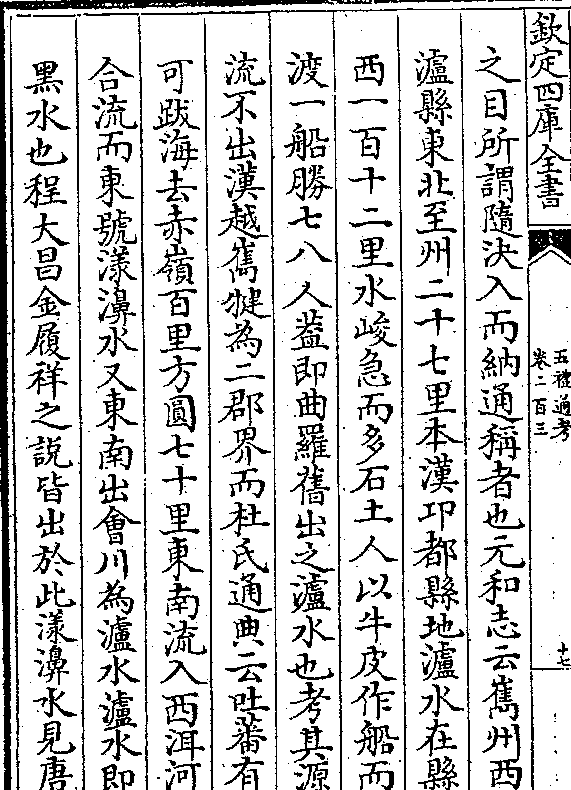 欽定四庫全書
五禮通考
卷二百三
十七
之目所謂隨決入而納通稱者也元和志云巂州西
瀘縣東北至州二十七里本漢卭都縣地瀘水在縣
西一百十二里水峻急而多石土人以牛皮作船而
渡一船勝七八人葢即曲羅舊出之瀘水也考其源
流不出漢越巂犍為二郡界而杜氏通典云吐蕃有
可跋海去赤嶺百里方圓七十里東南流入西洱河
合流而東號漾濞水又東南出會川為瀘水瀘水即
黑水也程大昌金履祥之說皆出於此漾濞水見唐